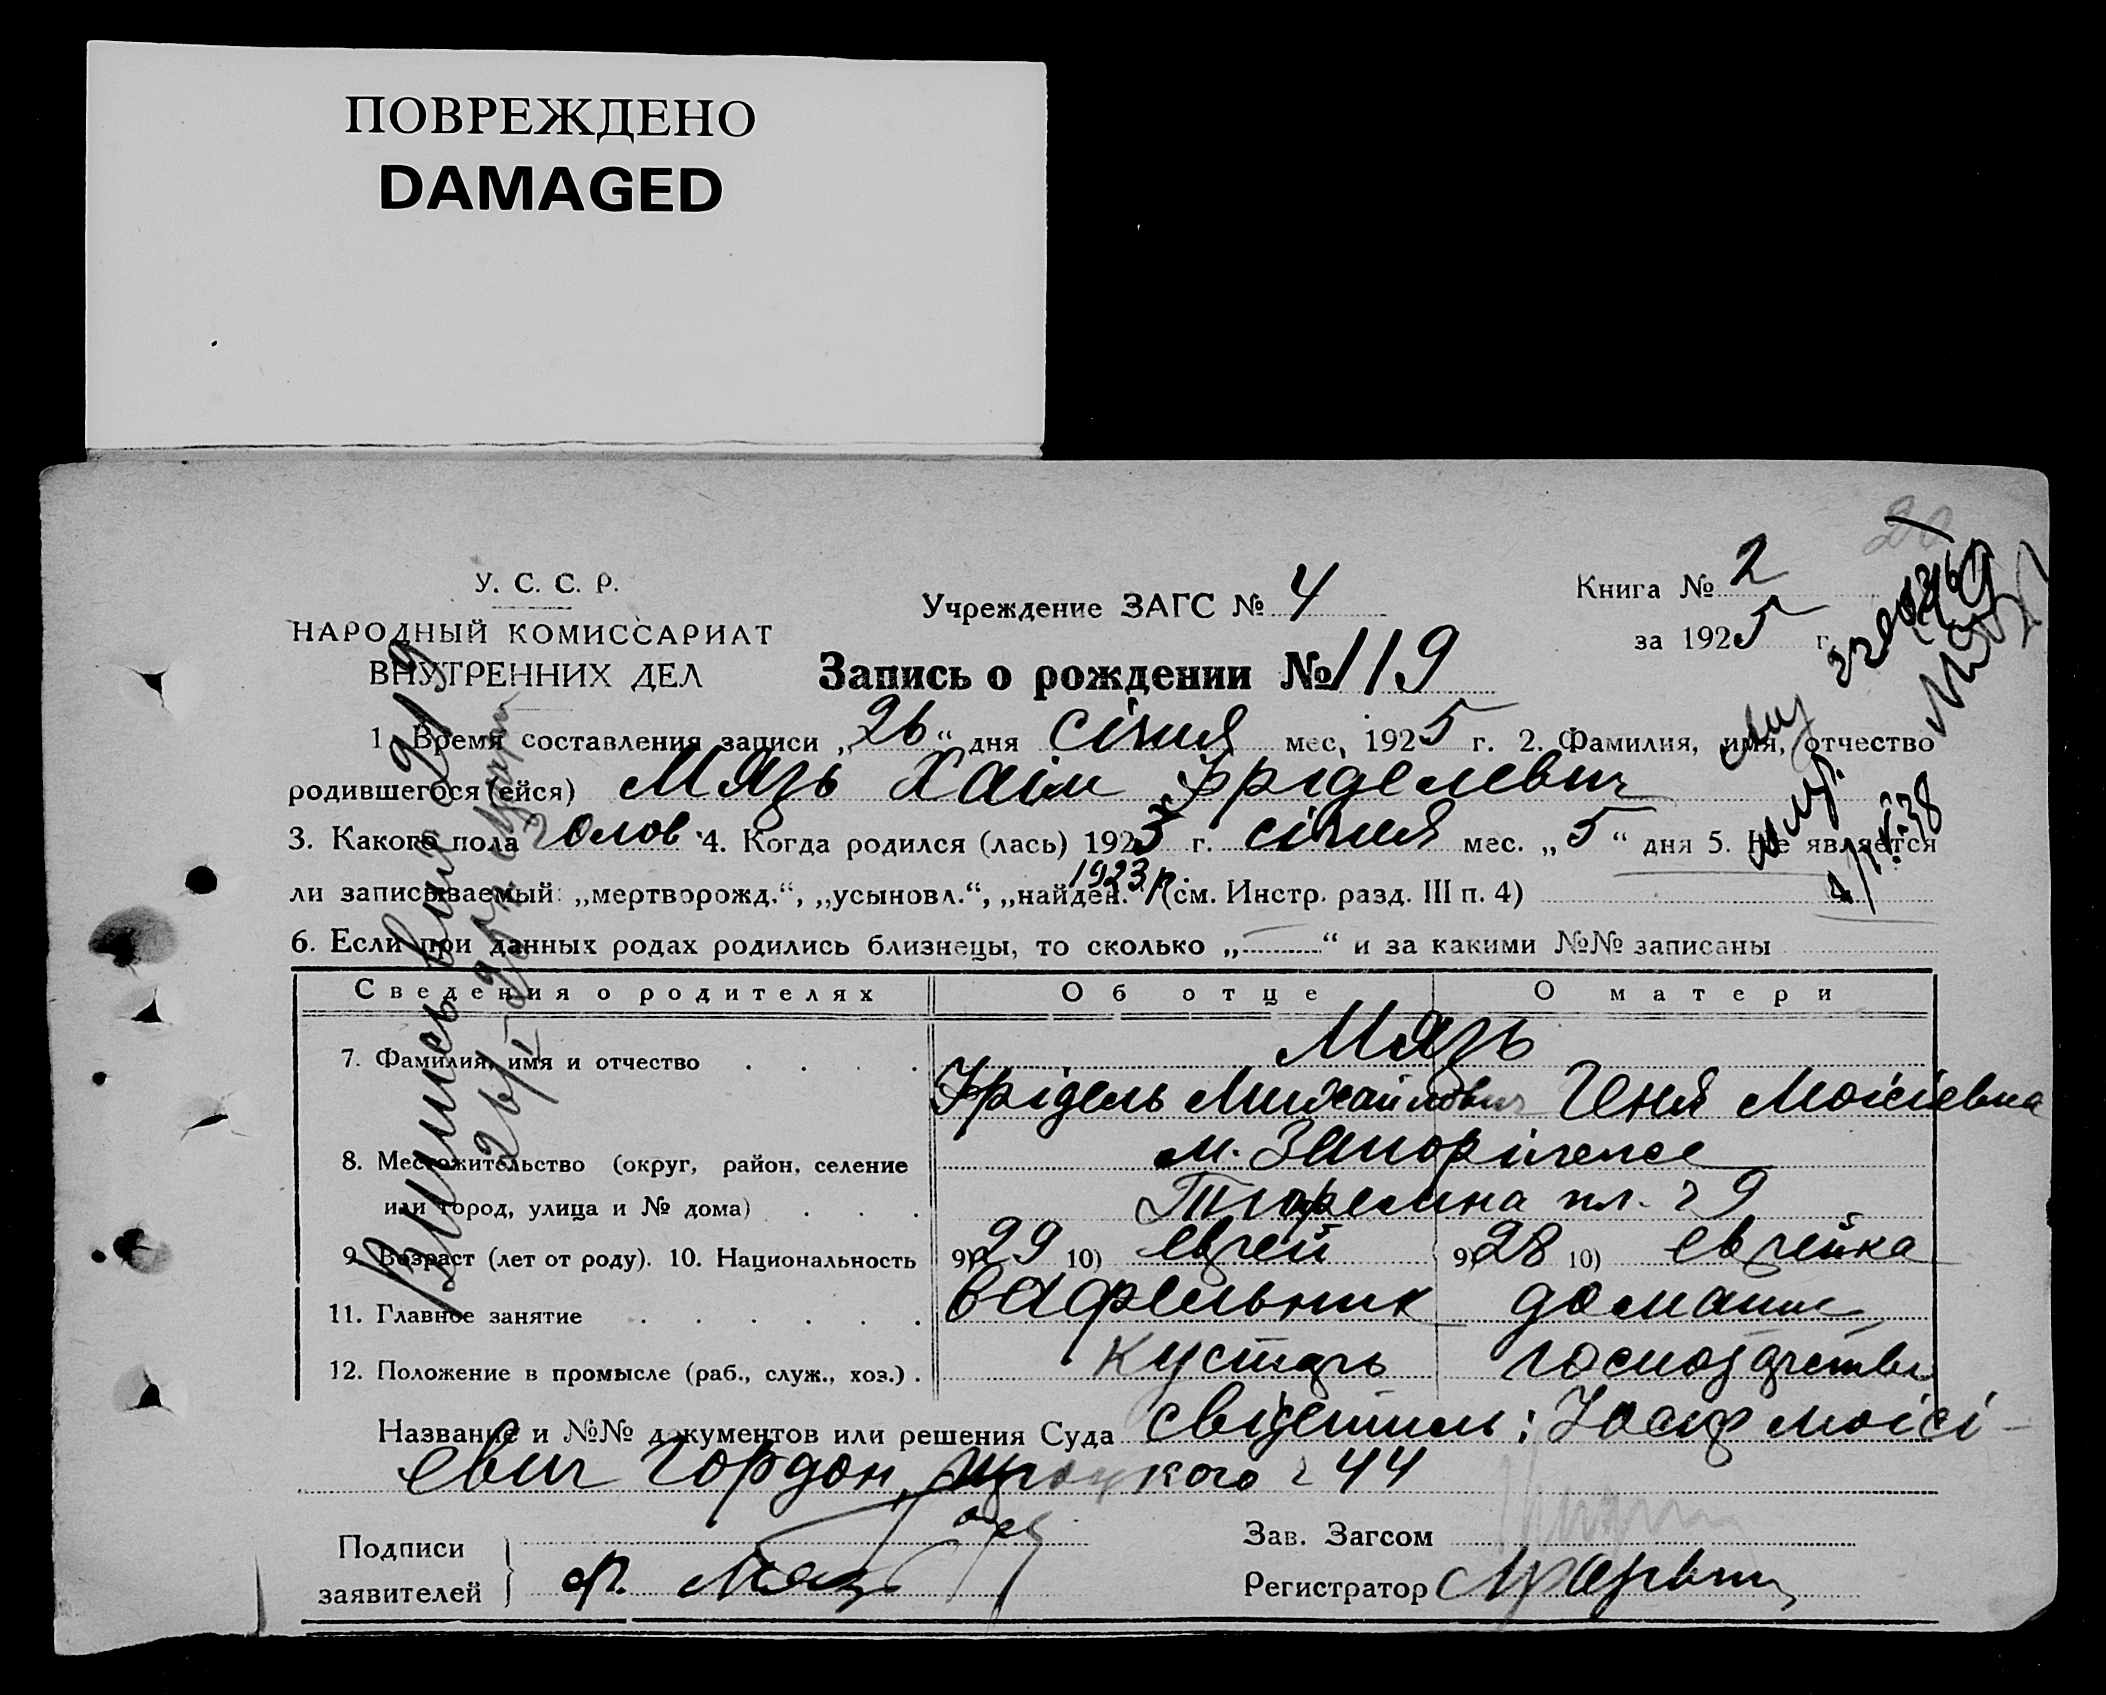 ПОВРЕЖДЕНО
DAMAGED
20
У. С. С. Р.
НАРОДНЫЙ КОМИССАРИАТ
ВНУТРЕННИХ ДЕЛ
Учреждение ЗАГС № 4
Книга № 2
за 1925 г.
Запись о рождении № 119
1. Время составления записи „26“ дня січня мес. 1925 г. 2. Фамилия, имя, отчество
родившегося (ейся) Мязь Хаім Фріделевич
3. Какого пола чолов. 4. Когда родился (лась) 1923 г. січня мес. „5“ дня 5. Не является
1923 р.
ли записываемый: „мертворожд.“, „усыновл.“, „найден.“ (см. Инстр. разд. III п. 4)
6. Если при данных родах родились близнецы, то сколько „—“ и за какими №№ записаны
Сведения о родителях Об отце О матери
Мязь
7. Фамилия, имя и отчество . . . . Фрідель Михайлович Геня Мойсіевна
8. Местожительство (округ, район, селение м. Запоріжже
или город, улица и № дома) . . . пл. 9
9. Возраст (лет от роду). 10. Национальность 9) 29 10) еврей 9) 28 10) еврейка
11. Главное занятие . . . . . . вафельник домашнє
12. Положение в промысле (раб., служ., хоз.) . кустарь господарство
Название и №№ документов или решения Суда свідетель: Йосиф Мойсі-
евич Гордон, Троцкого 44
Подписи
заявителей
ф. Мязь
Зав. Загсом
Регистратор